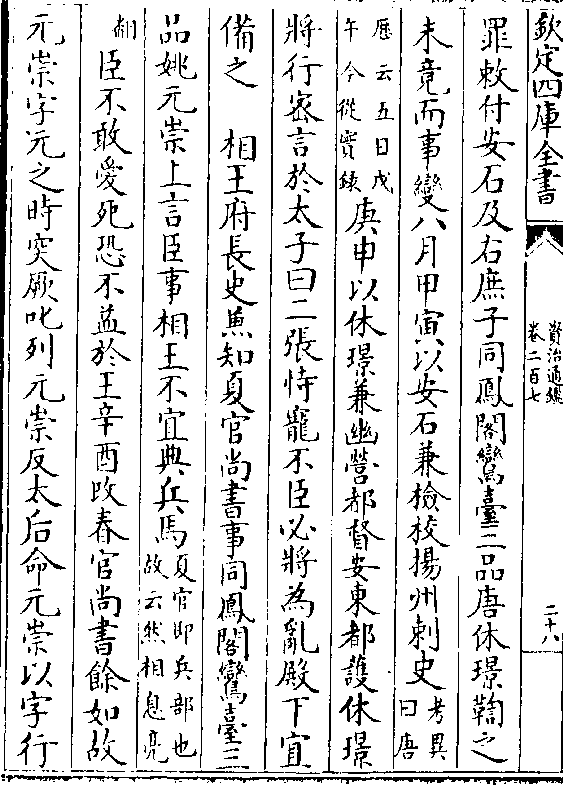 欽定四庫全書
資治通鑑
卷二百七
二十八
罪敕付安石及右庶子同鳳閣鸞臺三品唐休璟鞫之
未竟而事變八月甲寅以安石兼檢校揚州刺史考異曰唐
歴云五日戊午今從實録庚申以休璟兼幽營都督安東都護休璟
將行密言於太子曰二張恃寵不臣必將為亂殿下宜
備之　相王府長史兼知夏官尚書事同鳳閣鸞臺三
品姚元崇上言臣事相王不宜典兵馬夏官即兵部也故云然相息亮
翻臣不敢愛死恐不益於王辛酉改春官尚書餘如故
元崇字元之時突厥叱列元崇反太后命元崇以字行